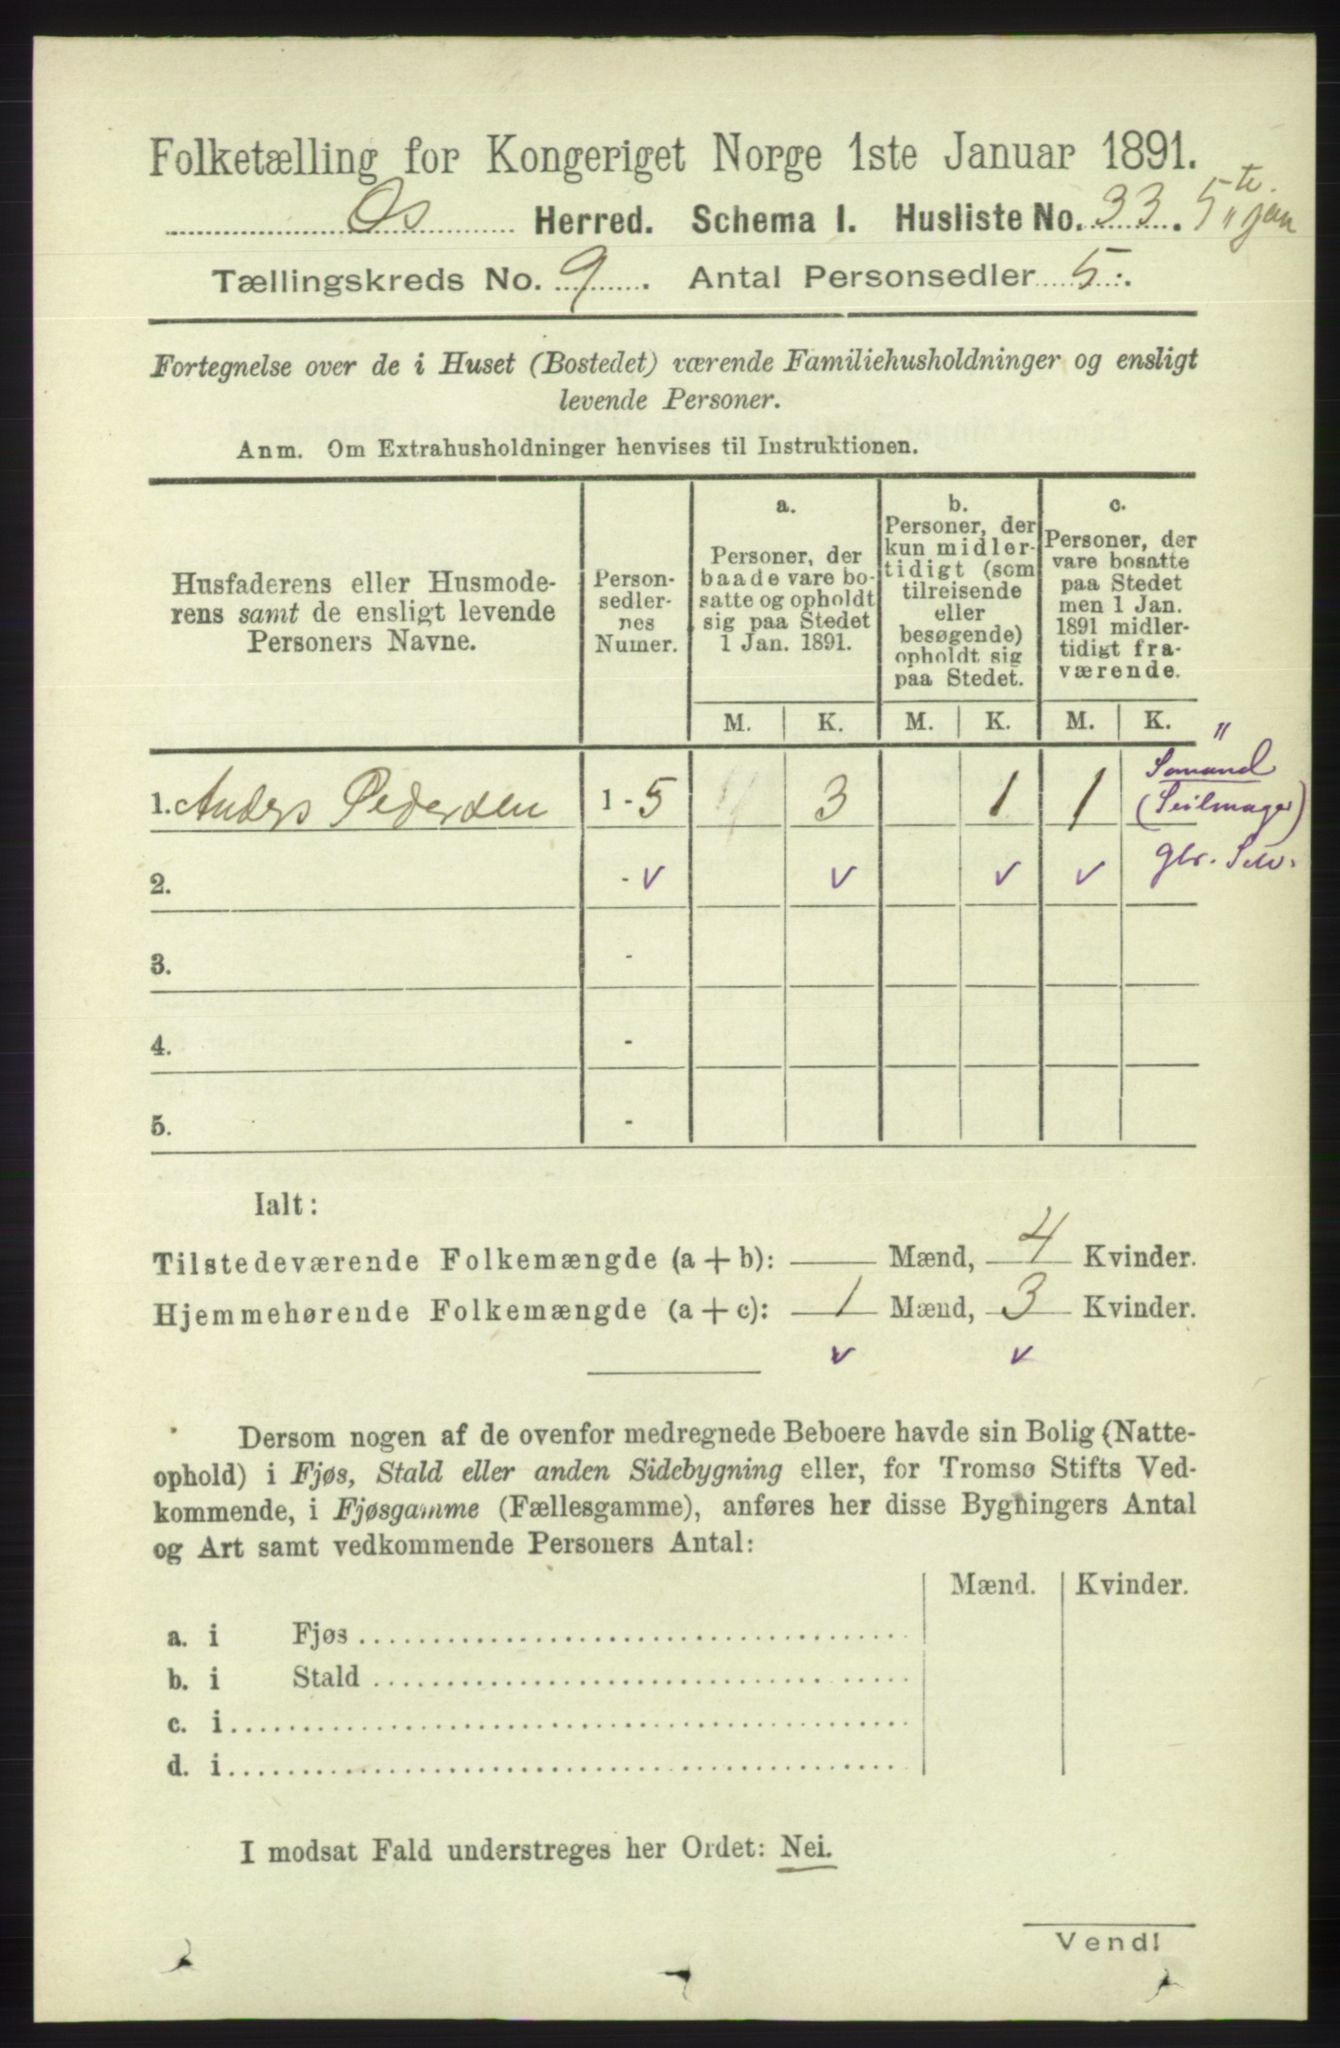 Folketælling for Kongeriget Norge 1ste Januar 1891.
Os Herred. Schema I. Husliste No. 33. 5te jan
Tællingskreds No. 9. Antal Personsedler 5.
Fortegnelse over de i Huset (Bostedet) værende Familiehusholdninger og ensligt
levende Personer.
Anm. Om Extrahusholdninger henvises til Instruktionen.
Husfaderens eller Husmode-
rens samt de ensligt levende
Personers Navne.
Person-
sedler-
nes
Numer.
a.
Personer, der
baade vare bo-
satte og opholdt
sig paa Stedet
1 Jan. 1891.
b.
Personer, der
kun midler-
tidigt (som
tilreisende
eller
besøgende)
opholdt sig
paa Stedet.
c.
Personer, der
vare bosatte
paa Stedet
men 1 Jan.
1891 midler-
tidigt fra-
værende.
M. K. M. K. M. K.
1. Anders Pedersen 1 - 5 3 1 1
"
Sømand
(Seilmager)
2. - v v v v
3. -
4. -
5. -
Ialt:
Tilstedeværende Folkemængde (a + b): — Mænd, 4 Kvinder.
Hjemmehørende Folkemængde (a + c): 1 Mænd, 3 Kvinder.
v v
Dersom nogen af de ovenfor medregnede Beboere havde sin Bolig (Natte-
ophold) i Fjøs, Stald eller anden Sidebygning eller, for Tromsø Stifts Ved-
kommende, i Fjøsgamme (Fællesgamme), anføres her disse Bygningers Antal
og Art samt vedkommende Personers Antal:
Mænd. Kvinder.
a. i Fjøs
b. i Stald
c. i
d. i
I modsat Fald understreges her Ordet: Nei.
Vend!